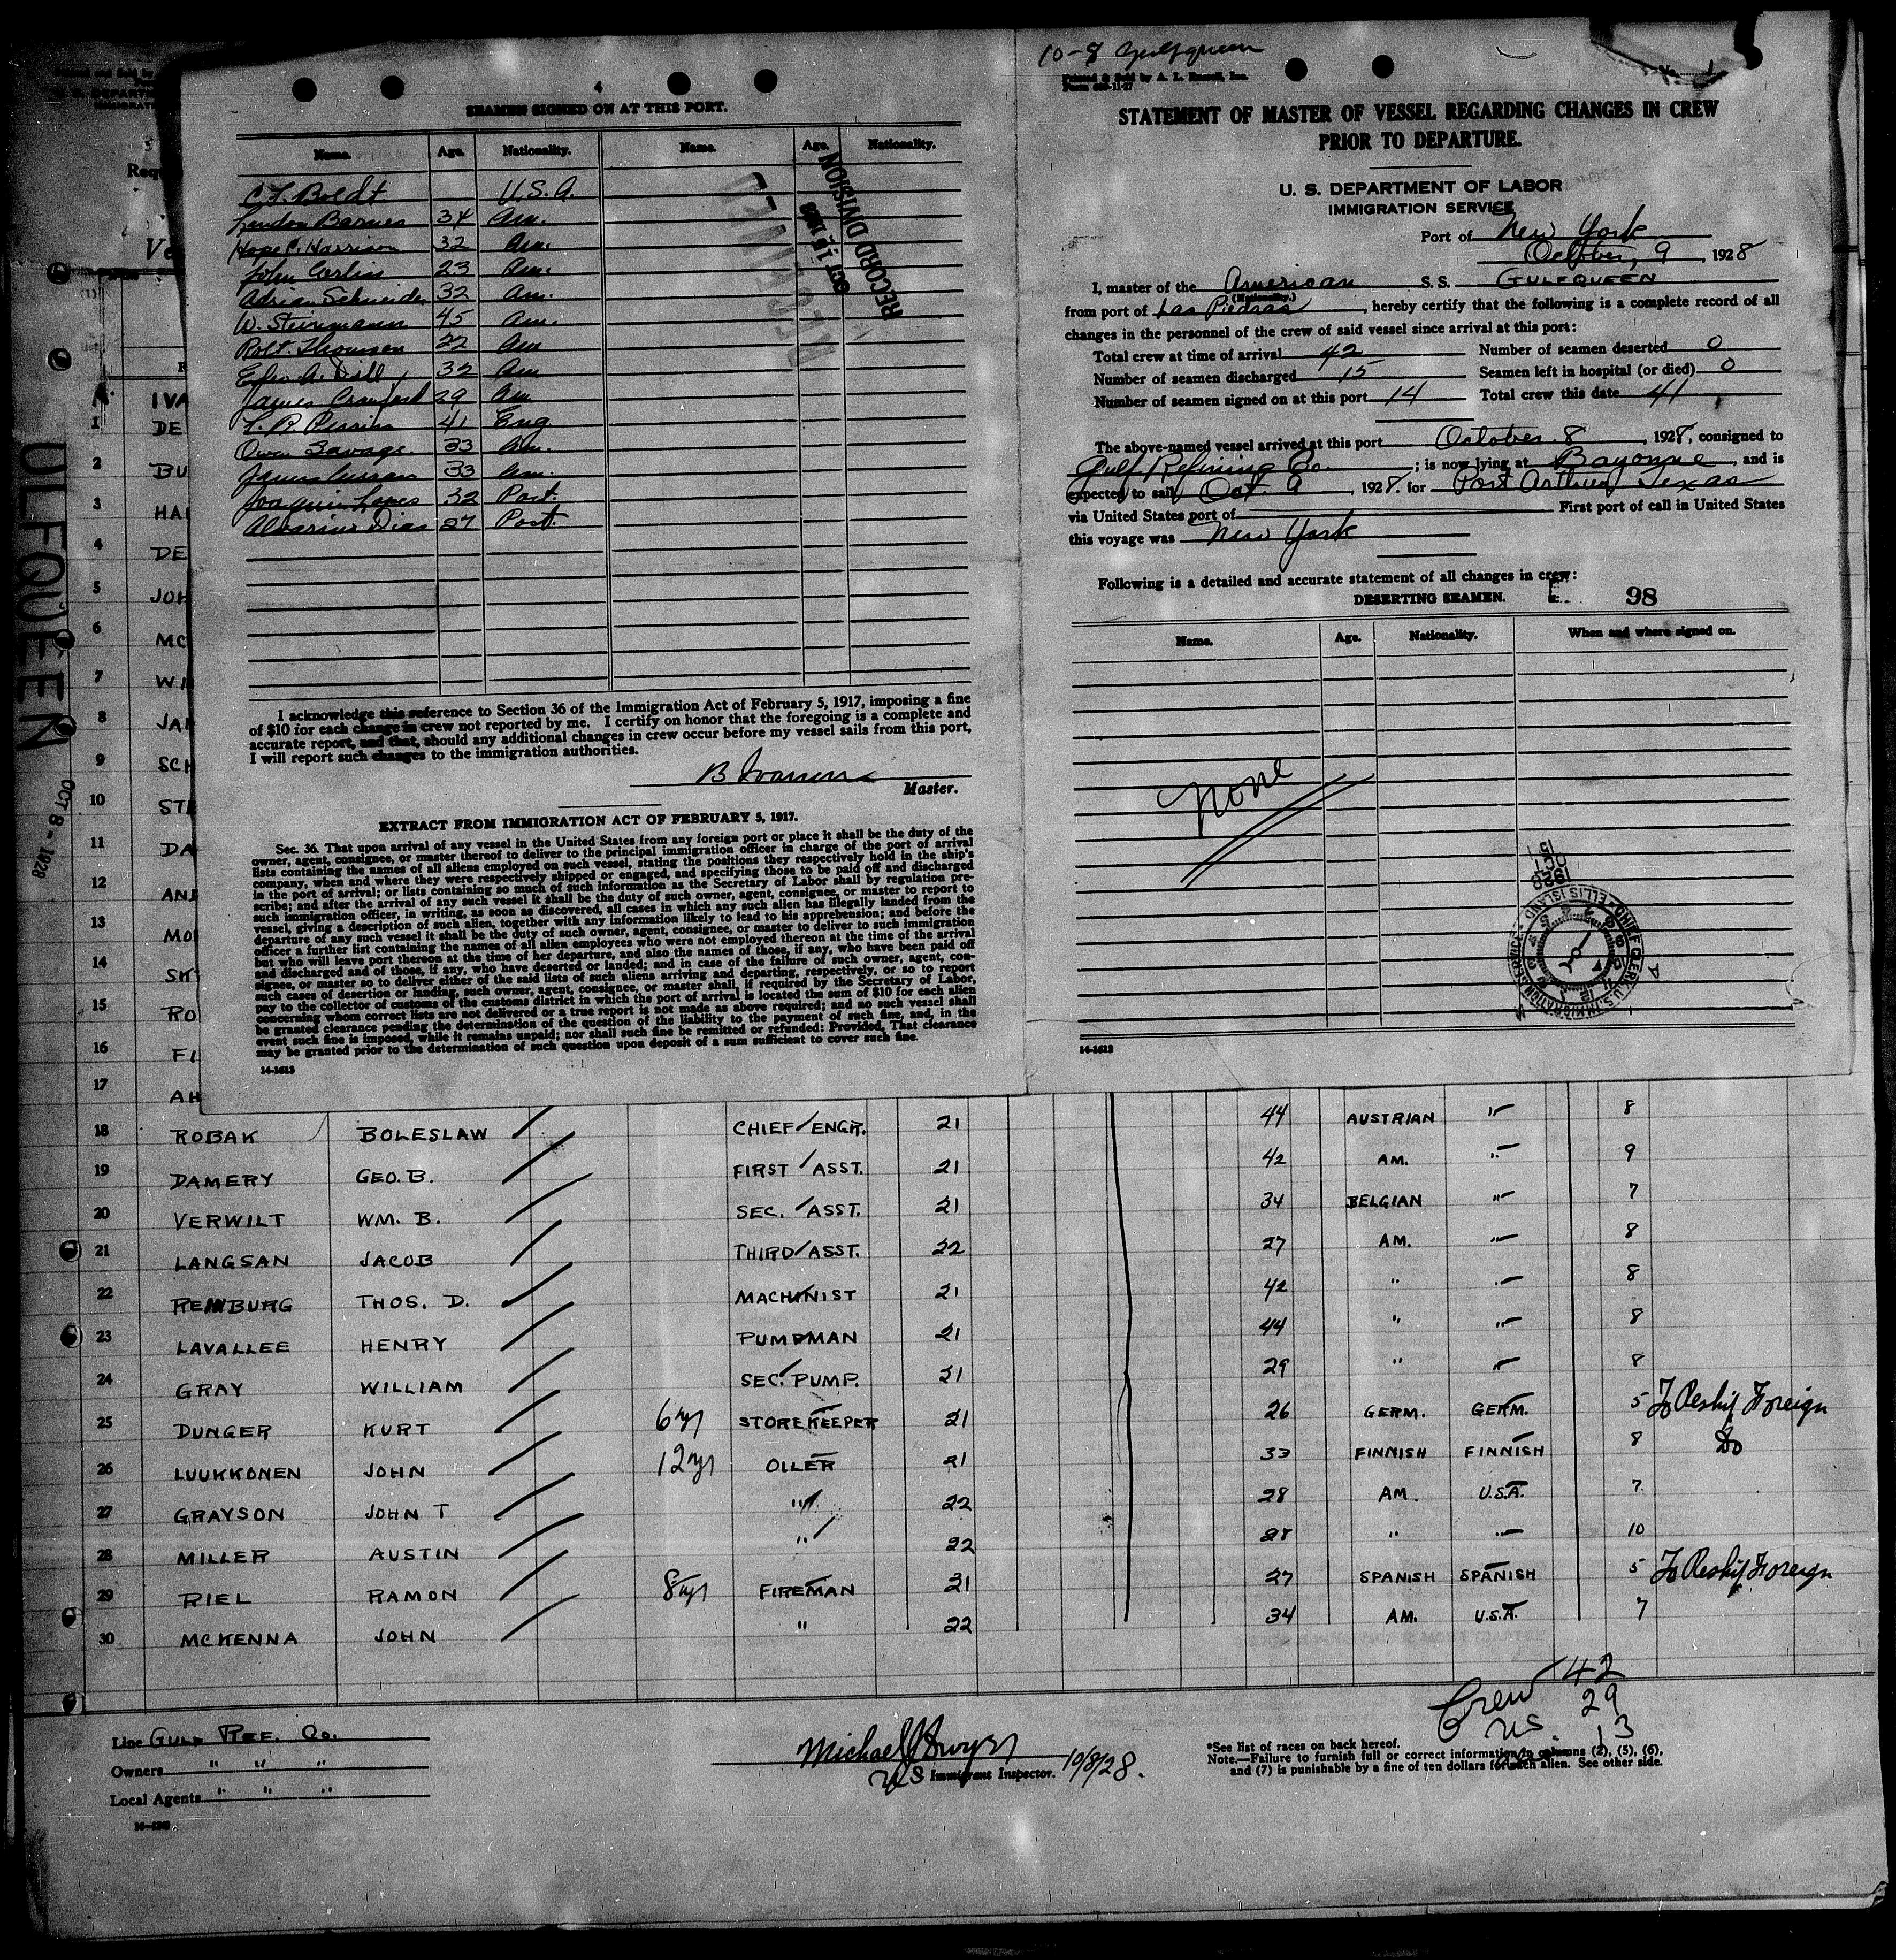 4
SEAMEN SIGNED ON AT THIS PORT.
Name. Age. Nationality. Name. Age. Nationality.
C. F. Boldt U.S.A.
Lyndon Barnes 34 Am.
Hope C. Harrison 32 Am.
John Corliss 23 Am.
Adrian Schneider 32 Am.
W. Steinmann 45 Am.
Robt. Thomsen 22 Am
A. Dill 32 Am
James Crawford 29 Am
41 Eng.
Owen Savage 33 Am.
James 33 Am.
Joaquin Lopes 32 Port.
Dias 27 Port.
RECEIVED
OCT 15 1928
RECORD DIVISION
I acknowledge this reference to Section 36 of the Immigration Act of February 5, 1917, imposing a fine
of $10 for each change in crew not reported by me. I certify on honor that the foregoing is a complete and
accurate report, and that, should any additional changes in crew occur before my vessel sails from this port,
I will report such changes to the immigration authorities.
Master.
EXTRACT FROM IMMIGRATION ACT OF FEBRUARY 5, 1917.
Sec. 36. That upon arrival of any vessel in the United States from any foreign port or place it shall be the duty of the
owner, agent, consignee, or master thereof to deliver to the principal immigration officer in charge of the port of arrival
lists containing the names of all aliens employed on such vessel, stating the positions they respectively hold in the ship's
company, when and where they were respectively shipped or engaged, and specifying those to be paid off and discharged
in the port of arrival; or lists containing so much of such information as the Secretary of Labor shall by regulation pre-
scribe; and after the arrival of any such vessel it shall be the duty of such owner, agent, consignee, or master to report to
such immigration officer, in writing, as soon as discovered, all cases in which any such alien has illegally landed from the
vessel, giving a description of such alien, together with any information likely to lead to his apprehension; and before the
departure of any such vessel it shall be the duty of such owner, agent, consignee, or master to deliver to such immigration
officer a further list containing the names of all alien employees who were not employed thereon at the time of the arrival
but who will leave port thereon at the time of her departure, and also the names of those, if any, who have been paid off
and discharged and of those, if any, who have deserted or landed; and in case of the failure of such owner, agent, con-
signee, or master so to deliver either of the said lists of such aliens arriving and departing, respectively, or so to report
such cases of desertion or landing, such owner, agent, consignee, or master shall, if required by the Secretary of Labor,
pay to the collector of customs of the customs district in which the port of arrival is located the sum of $10 for each alien
concerning whom correct lists are not delivered or a true report is not made as above required; and no such vessel shall
be granted clearance pending the determination of the question of the liability to the payment of such fine, and, in the
event such fine is imposed, while it remains unpaid; nor shall such fine be remitted or refunded: Provided, That clearance
may be granted prior to the determination of such question upon deposit of a sum sufficient to cover such fine.
14-1613
10-8 Gulfqueen
Printed & Sold by A. L. Russell, Inc.
STATEMENT OF MASTER OF VESSEL REGARDING CHANGES IN CREW
PRIOR TO DEPARTURE.
U. S. DEPARTMENT OF LABOR
IMMIGRATION SERVICE
Port of New York
October, 9, 1928
I, master of the American S. S. GULFQUEEN
(Nationality.)
from port of Las Piedras, hereby certify that the following is a complete record of all
changes in the personnel of the crew of said vessel since arrival at this port:
Total crew at time of arrival 42 Number of seamen deserted 0
Number of seamen discharged 15 Seamen left in hospital (or died) 0
Number of seamen signed on at this port 14 Total crew this date 41
The above-named vessel arrived at this port October 8, 1928, consigned to
Gulf Refining Co.; is now lying at Bayonne and is
expected to sail Oct. 9, 1928, for Port Arthur Texas
via United States port of First port of call in United States
this voyage was New York
Following is a detailed and accurate statement of all changes in crew:
DESERTING SEAMEN. 98
Name. Age. Nationality. When and where signed on.
None
1928
CHIEF CLERK U.S. IMMIGRATION SERVICE ELLIS ISLAND
14-1613
ULFQUEEN
OCT 8 - 1928
IVA
1 DE
2 BU
3 HA
4 DE
5 JOH
6 MC
7 WI
8 JA
9 SCH
10 STE
11 DA
12 AN
13 MO
14 SK
15 RO
16 FI
17 AH
18 ROBAK BOLESLAW CHIEF ENGR. 21 44 AUSTRIAN " 8
19 DAMERY GEO. B. FIRST ASST. 21 42 AM. " 9
20 VERWILT WM. B. SEC. ASST. 21 34 BELGIAN " 7
21 LANGSAN JACOB THIRD ASST. 22 27 AM. " 8
22 REMBURG THOS. D. MACHINIST 21 42 " " 8
23 LAVALLEE HENRY PUMPMAN 21 44 " " 8
24 GRAY WILLIAM SEC. PUMP. 21 29 " " 8
25 DUNGER KURT 6 yrs STOREKEEPER 21 26 GERM. GERM. 5 To Reship Foreign
26 LUUKKONEN JOHN 12 yrs OILER 21 33 FINNISH FINNISH 8 Do
27 GRAYSON JOHN T " 22 28 AM. U.S.A. 7
28 MILLER AUSTIN " 22 28 " " 10
29 RIEL RAMON 8 yrs FIREMAN 21 27 SPANISH SPANISH 5 To Reship Foreign
30 MCKENNA JOHN " 22 34 AM. U.S.A. 7
Crew 42
US. 29
13
Line GULF REF. Co.
Owners " " "
Local Agents " " "
Michael J Dwyer 10/8/28.
US Immigrant Inspector.
*See list of races on back hereof.
Note.—Failure to furnish full or correct information in columns (2), (5), (6),
and (7) is punishable by a fine of ten dollars for each alien. See other side.